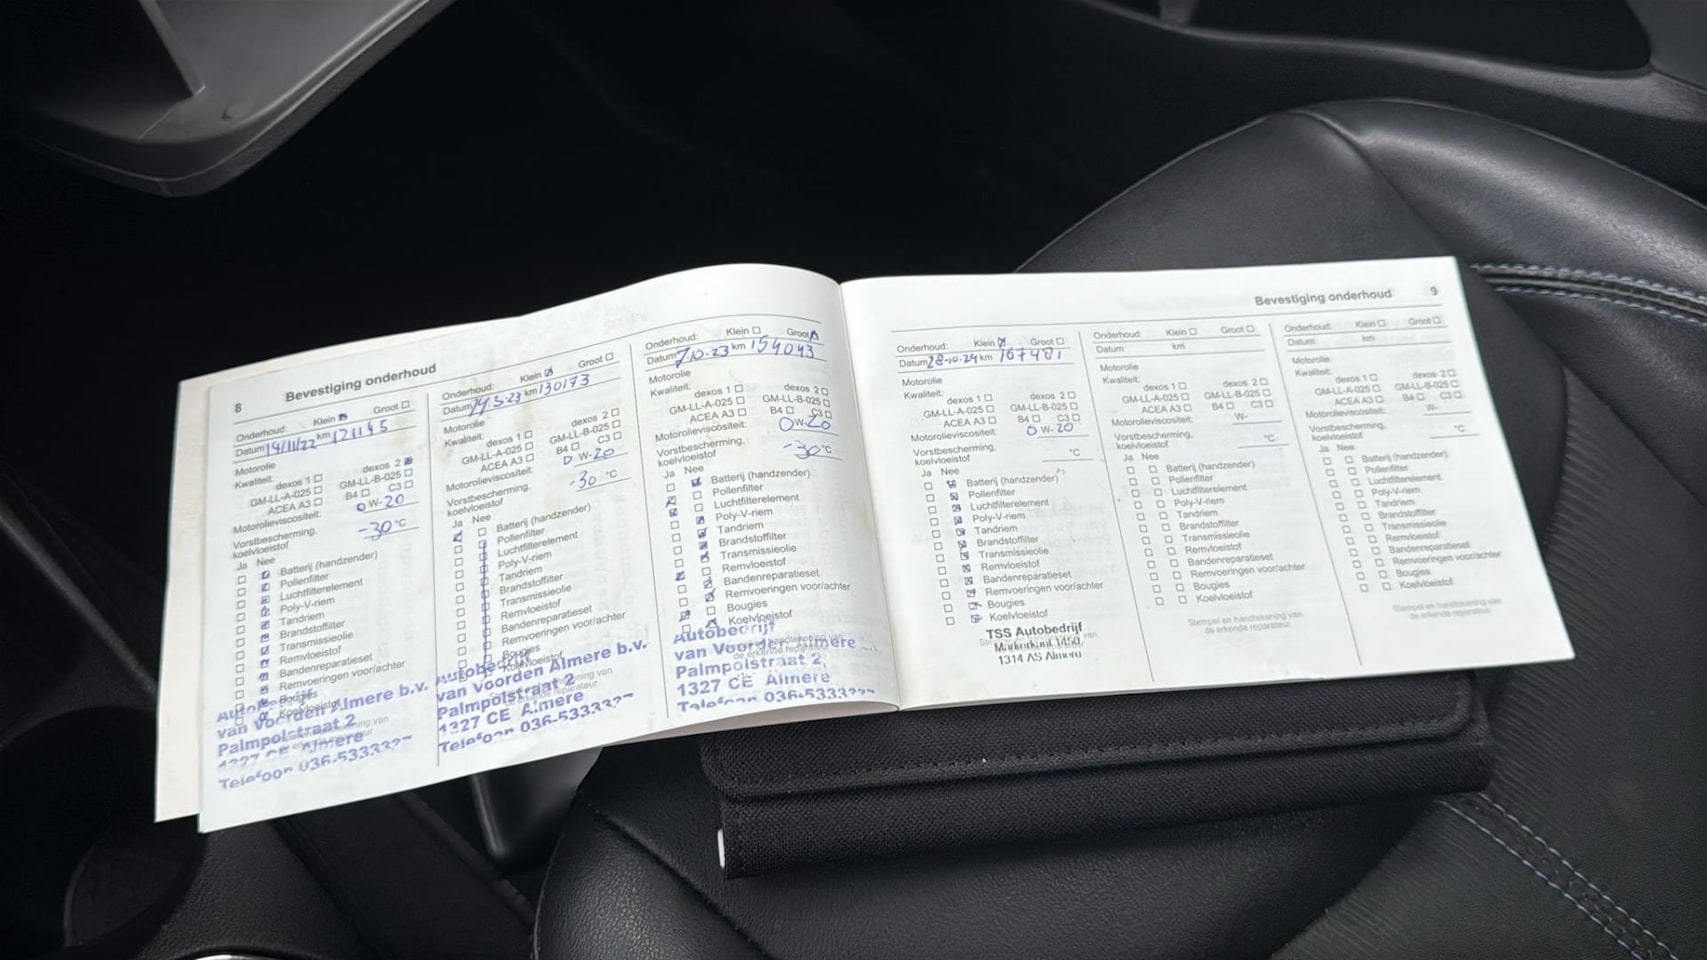 8
Bevestiging onderhoud
Onderhoud: Klein ☒ Groot ☐
Datum 14/11/22 km 121145
Motorolie
Kwaliteit: dexos 1 ☐ dexos 2 ☒
GM-LL-A-025 ☐ GM-LL-B-025 ☐
ACEA A3 ☐ B4 ☐ C3 ☐
Motorolieviscositeit: 0 W-20
Vorstbescherming,
koelvloeistof -30 °C
Ja Nee
Batterij (handzender)
Pollenfilter
Luchtfilterelement
Poly-V-riem
Tandriem
Brandstoffilter
Transmissieolie
Remvloeistof
Bandenreparatieset
Remvoeringen voor/achter
Bougies
Koelvloeistof
Autobedrijf
van Voorden Almere b.v.
Palmpolstraat 2
1327 CE Almere
Telefoon 036-53333
Onderhoud: Klein ☒ Groot ☐
Datum 14-3-23 km 130173
Motorolie
Kwaliteit: dexos 1 ☐ dexos 2 ☐
GM-LL-A-025 ☐ GM-LL-B-025 ☐
ACEA A3 ☐ B4 ☐ C3 ☐
Motorolieviscositeit: 0 W-20
Vorstbescherming,
koelvloeistof -30 °C
Ja Nee
Batterij (handzender)
Pollenfilter
Luchtfilterelement
Poly-V-riem
Tandriem
Brandstoffilter
Transmissieolie
Remvloeistof
Bandenreparatieset
Remvoeringen voor/achter
Bougies
Koelvloeistof
Autobedrijf
van Voorden Almere b.v.
Palmpolstraat 2
1327 CE Almere
Telefoon 036-53333
Onderhoud: Klein ☐ Groot ☒
Datum 7-10-23 km 154043
Motorolie
Kwaliteit: dexos 1 ☐ dexos 2 ☐
GM-LL-A-025 ☐ GM-LL-B-025 ☐
ACEA A3 ☐ B4 ☐ C3 ☐
Motorolieviscositeit: 0 W-20
Vorstbescherming,
koelvloeistof -30 °C
Ja Nee
Batterij (handzender)
Pollenfilter
Luchtfilterelement
Poly-V-riem
Tandriem
Brandstoffilter
Transmissieolie
Remvloeistof
Bandenreparatieset
Remvoeringen voor/achter
Bougies
Koelvloeistof
Autobedrijf
van Voorden Almere
Palmpolstraat 2
1327 CE Almere
Telefoon 036-53333
Bevestiging onderhoud
9
Onderhoud: Klein ☒ Groot ☐
Datum 28-10-24 km 167401
Motorolie
Kwaliteit: dexos 1 ☐ dexos 2 ☐
GM-LL-A-025 ☐ GM-LL-B-025 ☐
ACEA A3 ☐ B4 ☐ C3 ☐
Motorolieviscositeit: 0 W-20
Vorstbescherming,
koelvloeistof °C
Ja Nee
Batterij (handzender)
Pollenfilter
Luchtfilterelement
Poly-V-riem
Tandriem
Brandstoffilter
Transmissieolie
Remvloeistof
Bandenreparatieset
Remvoeringen voor/achter
Bougies
Koelvloeistof
TSS Autobedrijf
Markerkant 1450
1314 AS Almere
Onderhoud: Klein ☐ Groot ☐
Datum km
Motorolie
Kwaliteit: dexos 1 ☐ dexos 2 ☐
GM-LL-A-025 ☐ GM-LL-B-025 ☐
ACEA A3 ☐ B4 ☐ C3 ☐
Motorolieviscositeit: W-
Vorstbescherming,
koelvloeistof °C
Ja Nee
Batterij (handzender)
Pollenfilter
Luchtfilterelement
Poly-V-riem
Tandriem
Brandstoffilter
Transmissieolie
Remvloeistof
Bandenreparatieset
Remvoeringen voor/achter
Bougies
Koelvloeistof
Stempel en handtekening van
de erkende reparateur.
Onderhoud: Klein ☐ Groot ☐
Datum km
Motorolie
Kwaliteit: dexos 1 ☐ dexos 2 ☐
GM-LL-A-025 ☐ GM-LL-B-025 ☐
ACEA A3 ☐ B4 ☐ C3 ☐
Motorolieviscositeit: W-
Vorstbescherming,
koelvloeistof °C
Ja Nee
Batterij (handzender)
Pollenfilter
Luchtfilterelement
Poly-V-riem
Tandriem
Brandstoffilter
Transmissieolie
Remvloeistof
Bandenreparatieset
Remvoeringen voor/achter
Bougies
Koelvloeistof
Stempel en handtekening van
de erkende reparateur.